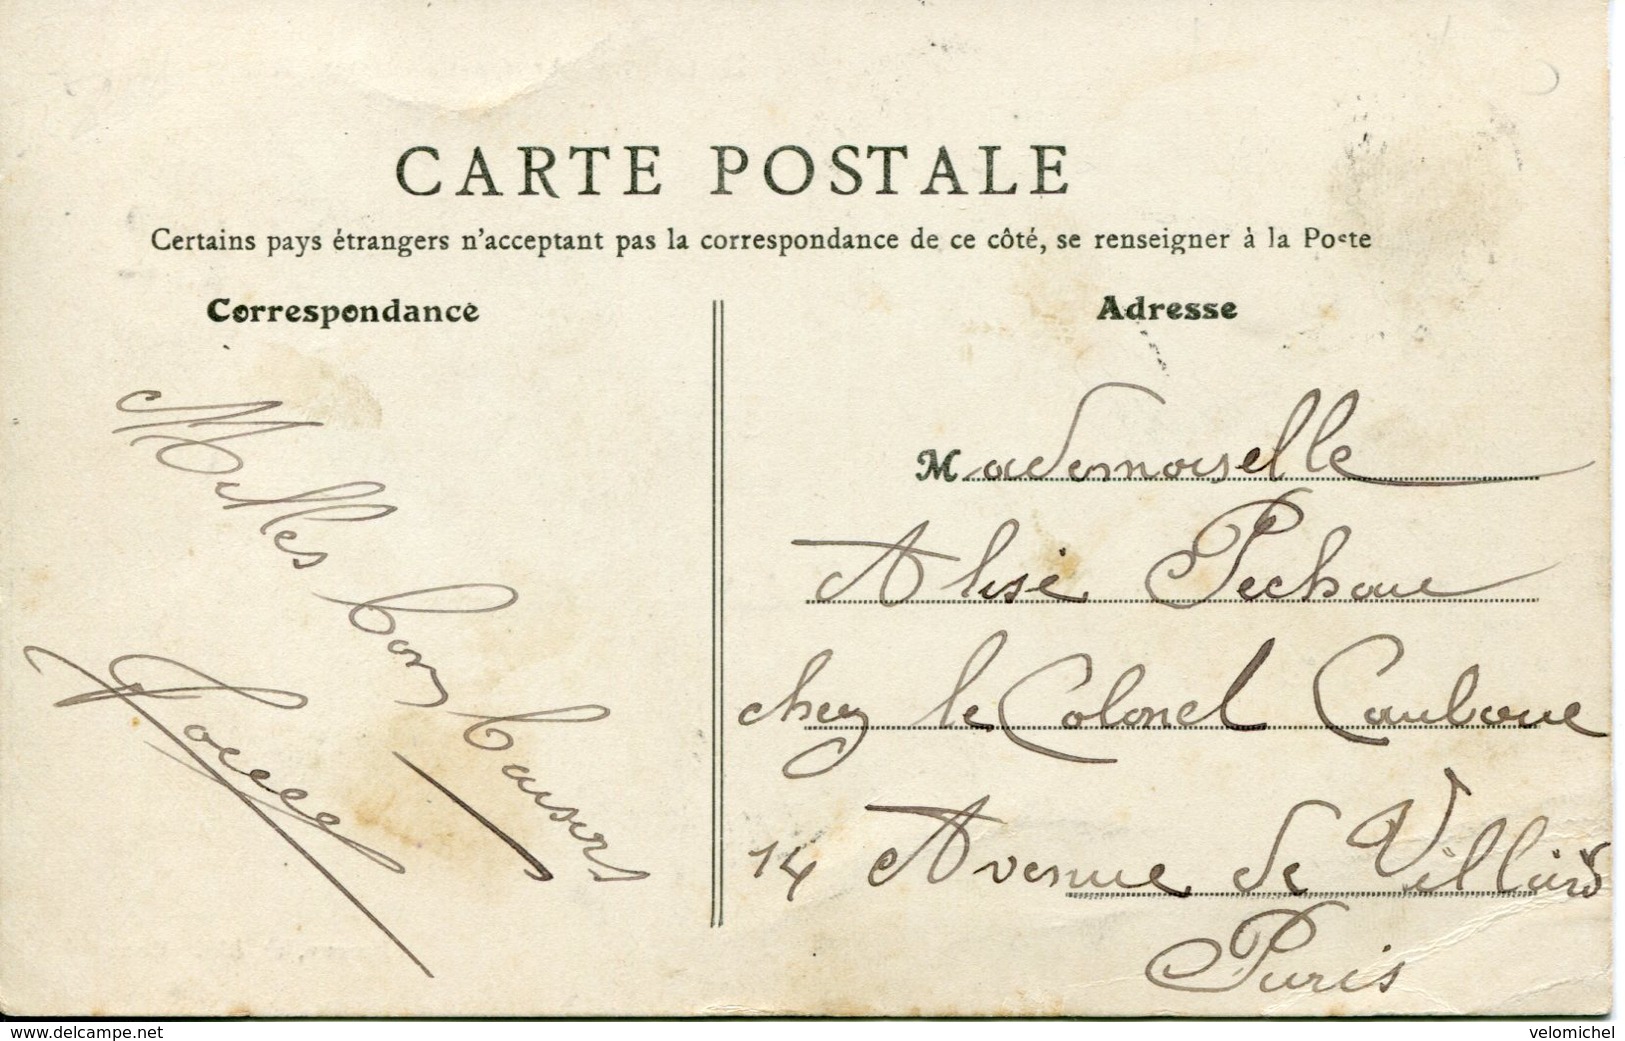 CARTE POSTALE
Certains pays étrangers n'acceptant pas la correspondance de ce côté, se renseigner à la Poste
Correspondance
Adresse
Milles bons baisers
Mademoiselle
Alise
chez le Colonel
14 Avenue de Villiers
Paris
www.delcampe.net
velomichel